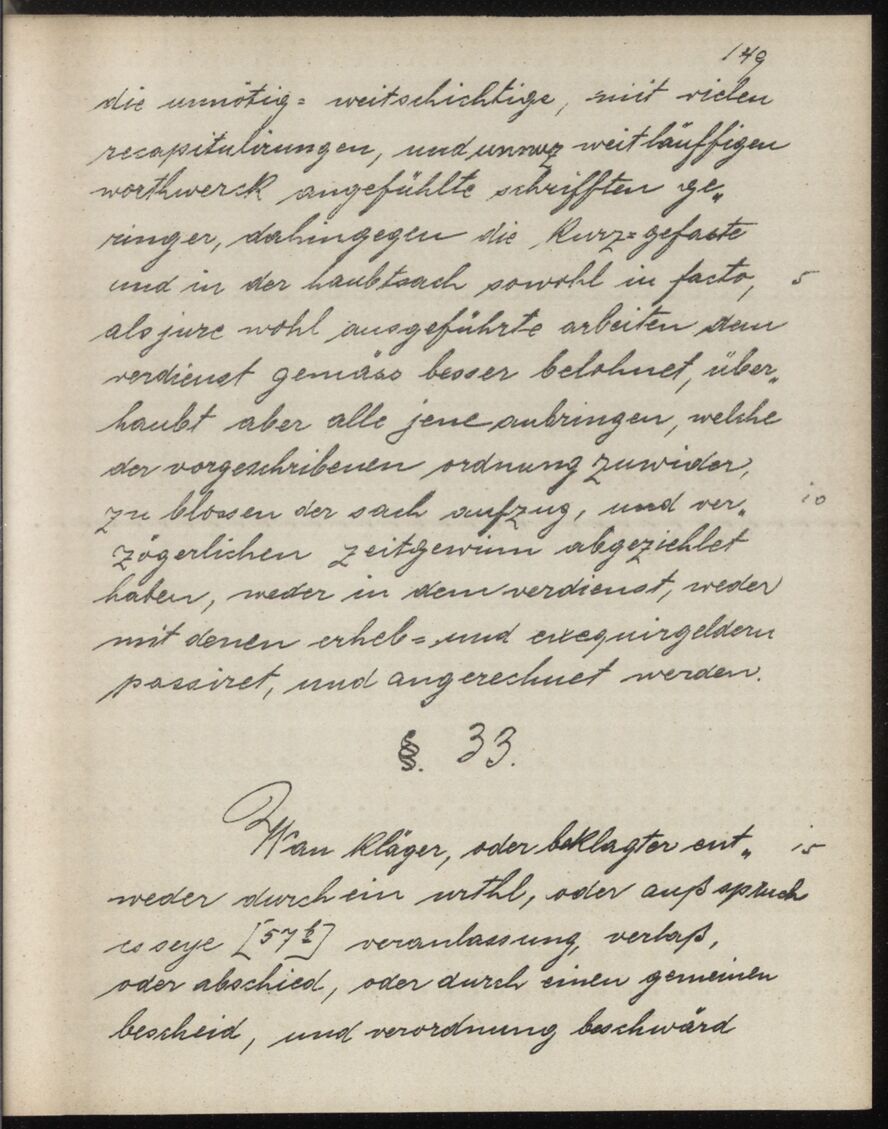 149
die unnötig= weitschichtige, mit vielen
recapitulirungen, und unnuz weitläuffigen
worthwerck angefühlte schrifften ge„
ringer, dahingegen die kurz=gefaste
und in der haubtsach sowohl in facto, 5
als jure wohl ausgeführte arbeiten dem
verdienst gemäss besser belohnet, über„
haubt aber alle jene anbringen, welche
der vorgeschribenen ordnung zuwider,
zu blossen der sach aufzug, und ver„ 10
zögerlichen zeitgewinn abgeziehlet
haben, weder in dem verdienst, weder
mit denen erheb= und exequirgeldern
passiret, und angerechnet werden.
§. 33.
Wan kläger, oder beklagter ent„ 15
weder durch ein urthl, oder außspruch
es seye [57b] veranlassung, verlaß,
oder abschied, oder durch einen gemeinen
bescheid, und verordnung beschwärd